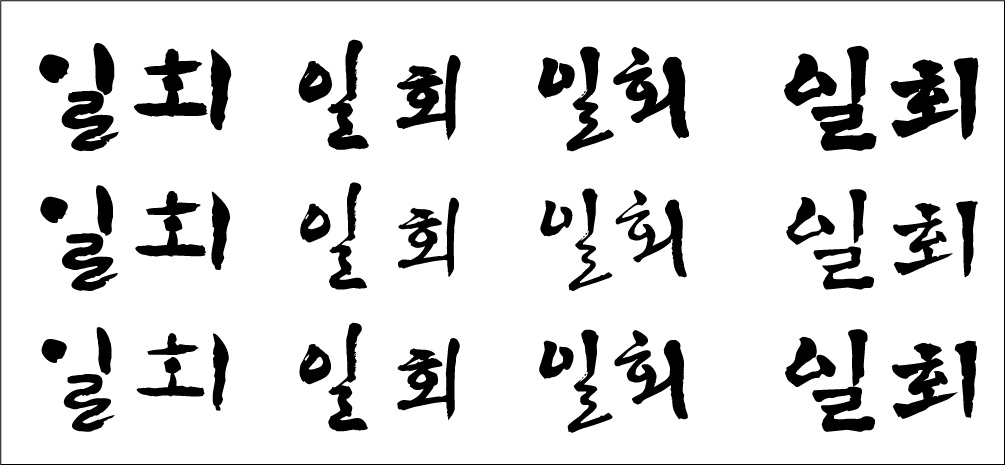 일회 일회 일회 일회
일회 일회 일회 일회
일회 일회 일회 일회